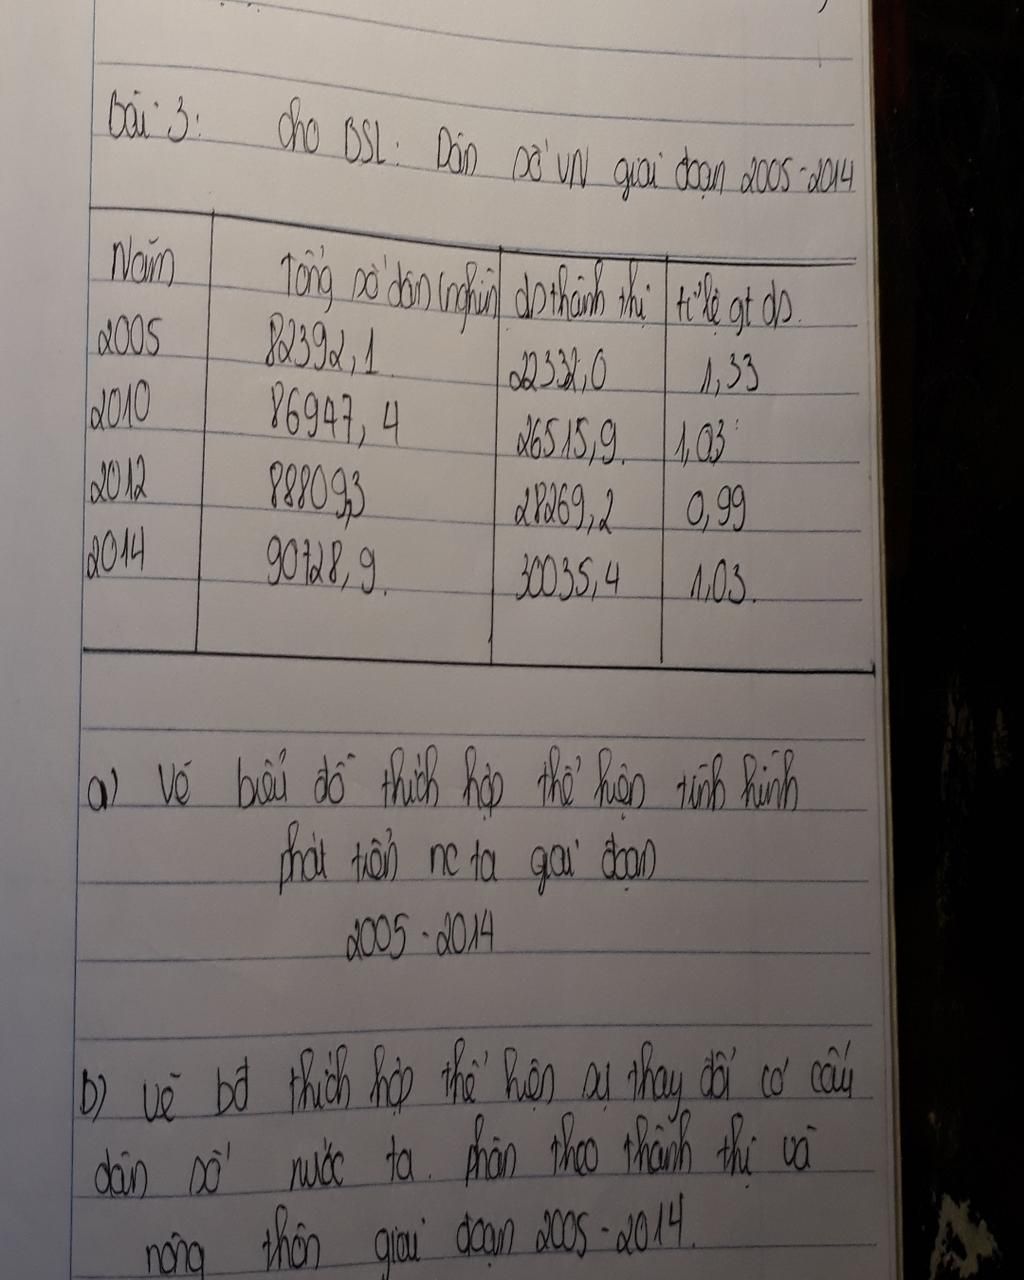 Bài 3: Cho BSL: Dân số VN giai đoạn 2005-2014
Năm Tổng số dân (nghìn) ds thành thị tỉ lệ gt ds.
2005 82392,1 22332,0 1,33
2010 86947,4 26515,9. 1,03
2012 88809,3 28269,2 0,99
2014 90728,9. 30035,4 1,03.
a) Vẽ biểu đồ thích hợp thể hiện tình hình
phát triển nc ta gai đoạn
2005-2014
b) vẽ bđ thích hợp thể hiện sự thay đổi cơ cấu
dân số nước ta. phân theo thành thị và
nông thôn giai đoạn 2005-2014.